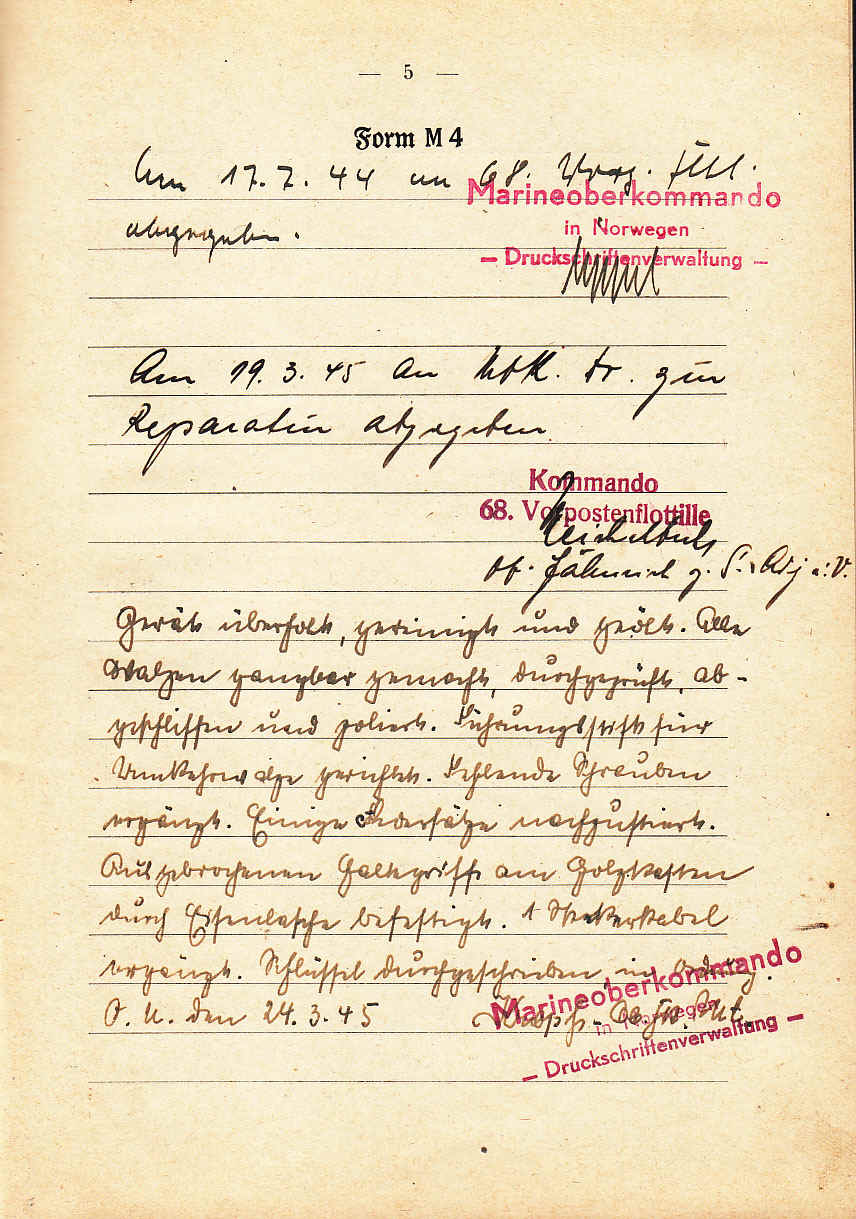 — 5 —
Form M 4
Am 17.7.44 an 68. Vorp. Flll.
Marineoberkommando
abgegeben.
in Norwegen
— Druckschriftenverwaltung —
Am 19.3.45 an MOK. Dr. zur
Reparatur abgegeben
Kommando
68. Vorpostenflottille
Ob. Fähnrich z. S. u. Adj i.V.
Gerät überholt, gereinigt und geölt. Alle
Walzen gangbar gemacht, durchgeprüft, ab-
geschliffen und poliert. Führungsstift für
Umkehrwalze gerichtet. Fehlende Schrauben
ergänzt. Einige Federsätze nachjustiert.
Ausgebrochenen Haltegriff am Holzkasten
durch Eisenlasche befestigt. 1 Steckerkabel
ergänzt. Schlüssel durchgeschrieben, in Ordng.
O. U. den 24.3.45
Marineoberkommando
in Norwegen
— Druckschriftenverwaltung —